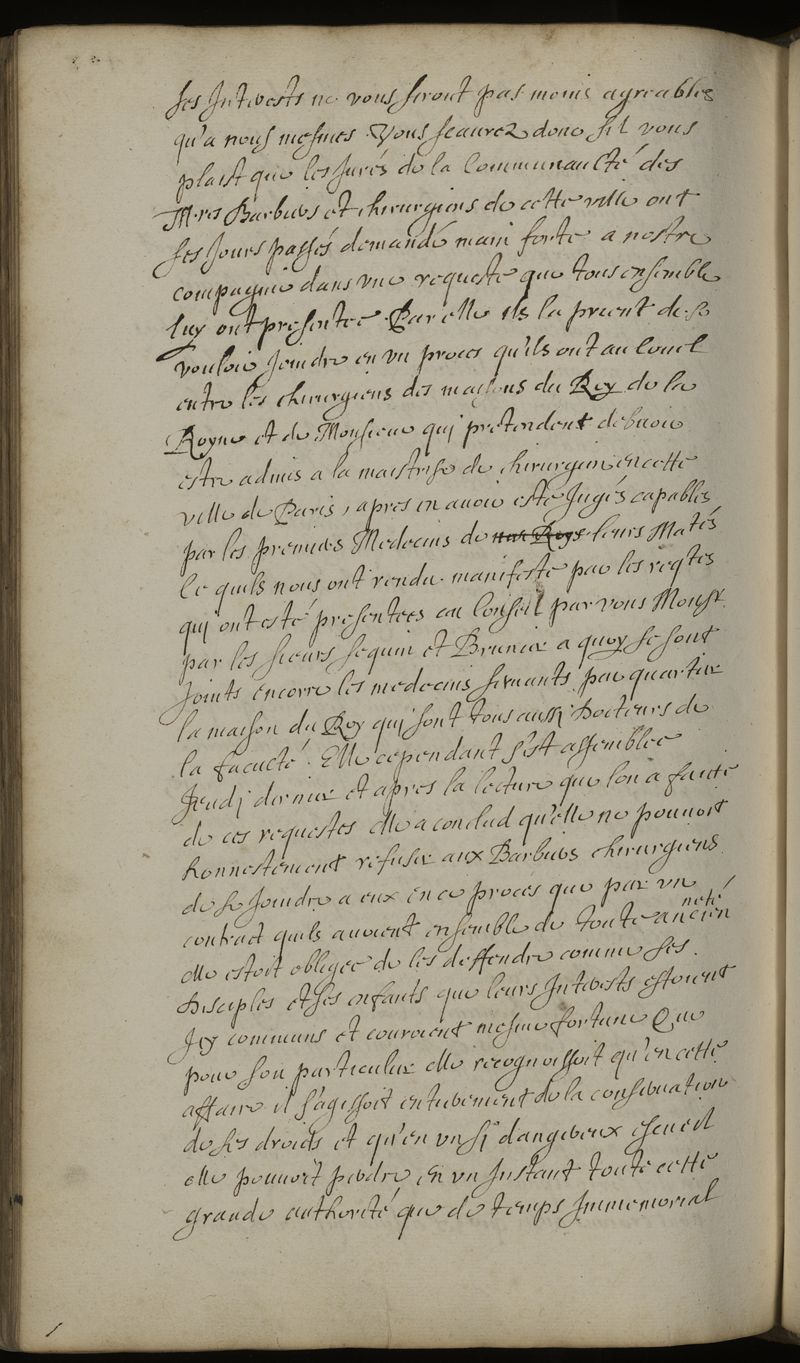 ses Interests ne vous seront pas moins agreables
qu'a nous mesmes. Vous scaurez donc s'il vous
plaist que les Jurés de la Communaulté des
Mres Barbiers et chirurgiens de cette ville ont
ses Jours passés demandé main forte a nostre
compagnie dans vne requeste que tous ensemble
luy ont presentée. Par elle ils la prient de se
vouloir Joindre en vn proces qu'ils ont au Concl
entre les chirurgiens des maisons du Roy de la
Royne et de Monsieur quj pretendent debuoir
estre admis a la maistrise de chirurgien en cette
ville de Paris, apres en auoir esté Jugés capables
par les premiers Medecins de nos Roys leurs Matés
Ce quils nous ont rendu manifeste par les reqtes
quj ont esté presentees au Conseil par vous Monsr
par les sieurs Seguin et Brunier a quoy se sont
Joints encorre les medecins seruants par quartier
la maison du Roy quj sont tous aussj Docteurs de
la faculté. Elle cependant s'est assemblee
Jeudj dernier et apres la lecture que lon a faicte
de ces requestes elle a conclud qu'elle ne pouuoit
honnestement refuser aux Barbiers chirurgiens
de se Joindre a eux en ce proces que par vn
contract quils auoient ensemble de toute ancienneté
elle estoit obligee de les deffendre comme ses
Disciples et ses enfants que leurs Interests estoient
Icy communs et couroient mesme fortune Que
pour son particulier elle recognoissoit qu'en cette
affaire il s'agissoit entierement de la conseruation
de ses droids et qu'en vn sj dangereux escueil
elle pouuoit perdre en vn Instant toute cette
grande authorité que de temps Immemorial